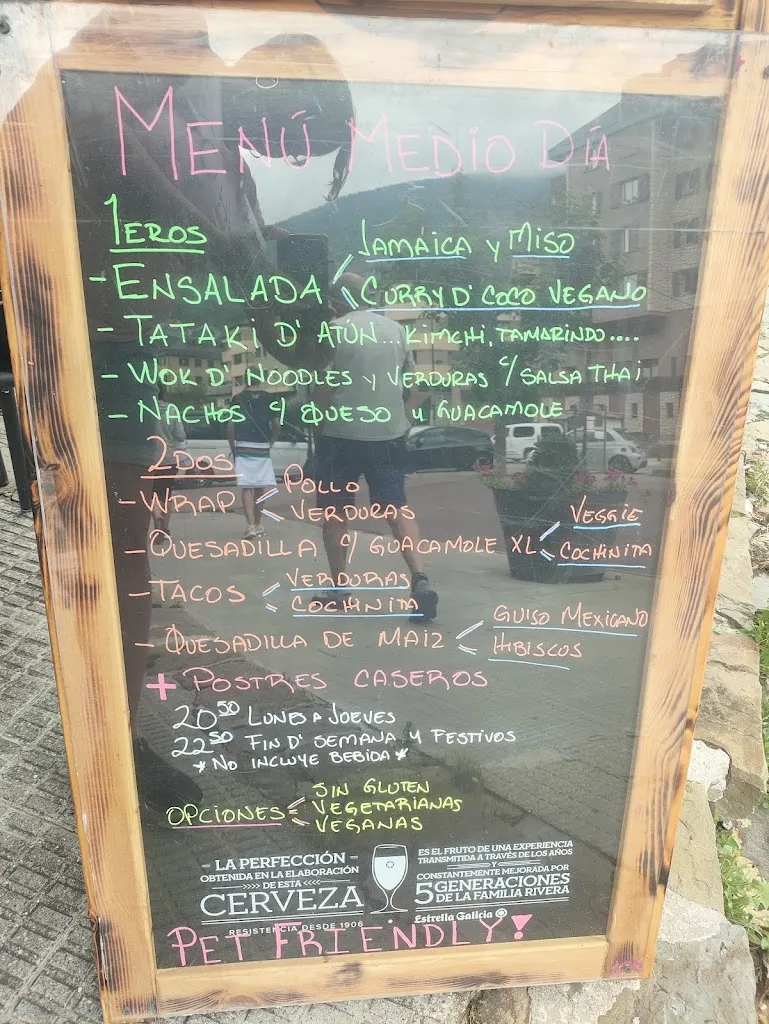 MENÚ MEDIO DÍA
1EROS
- ENSALADA JAMÁICA y MISO
CURRY D' COCO VEGANO
- TATAKI D' ATÚN...KIMCHI, TAMARINDO....
- WOK D' NOODLES y VERDURAS C/ SALSA THAI
- NACHOS C/ QUESO y GUACAMOLE
2DOS
- WRAP POLLO
VERDURAS
- QUESADILLA C/ GUACAMOLE XL VEGGIE
COCHINITA
- TACOS VERDURAS
COCHINITA
- QUESADILLA DE MAIZ GUISO MEXICANO
HIBISCOS
+ POSTRES CASEROS
20'50 LUNES A JUEVES
22'50 FIN D' SEMANA Y FESTIVOS
* NO INCLUYE BEBIDA *
OPCIONES SIN GLUTEN
VEGETARIANAS
VEGANAS
- LA PERFECCIÓN -
OBTENIDA EN LA ELABORACIÓN
>>>> DE ESTA <<<<
CERVEZA
RESISTENCIA DESDE 1906
ES EL FRUTO DE UNA EXPERIENCIA
TRANSMITIDA A TRAVÉS DE LOS AÑOS
Y
CONSTANTEMENTE MEJORADA POR
5 GENERACIONES
DE LA FAMILIA RIVERA
Estrella Galicia
PET FRIENDLY!